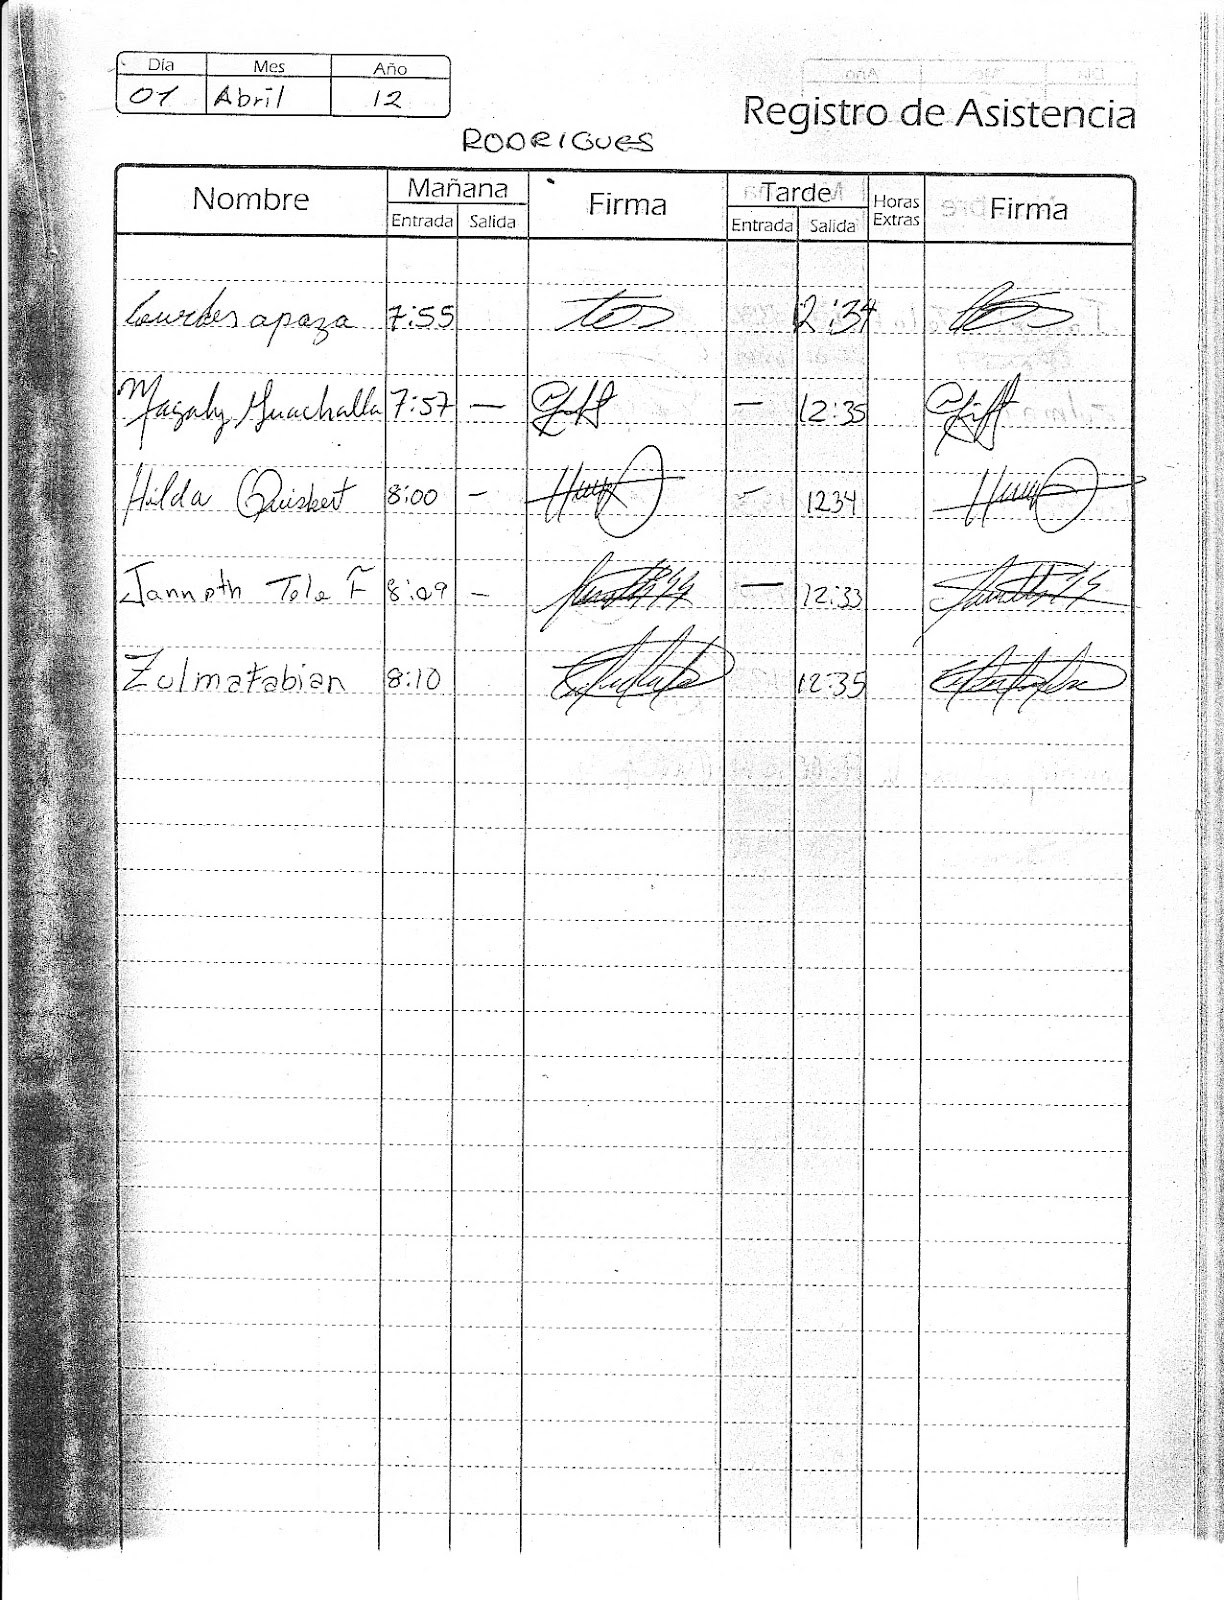 Día Mes Año
07 Abril 12
Registro de Asistencia
RODRIGUES
Nombre Mañana Firma Tarde Horas Extras Firma
Entrada Salida Entrada Salida
Lourdes apaza 7:55 12:34
Magaly Guachalla 7:57 — — 12:35
Hilda Quisbert 8:00 – – 1234
Janneth Tola F 8:09 – — 12:33
Zulma Fabian 8:10 12:35